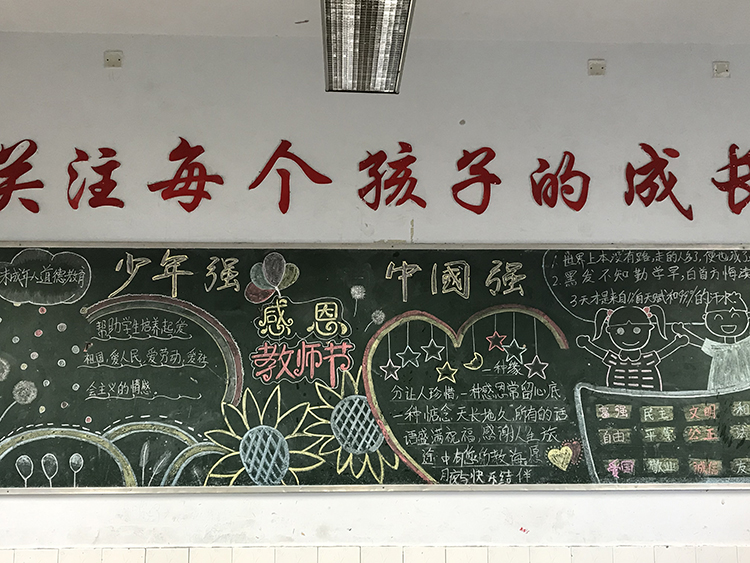 关注每个孩子的成长
未成年人道德教育
少年强
中國强
帮助学生培养起爱
祖国,爱人民,爱劳动,爱社
会主义的情感
感恩
教师节
一种缘
分让人珍惜,一种感恩常留心底
一种惦念天长地久,所有的话
语盛满祝福,感谢人生旅
途中有您的教诲,愿
与快乐结伴
1.世界上本没有路,走的人多了,便也成了
2.黑发不知勤学早,白首方悔读
3.天才是来自1%的天赋和99%的汗水
富强 民主 文明 和
自由 平等 公正
爱国 敬业 诚信 友